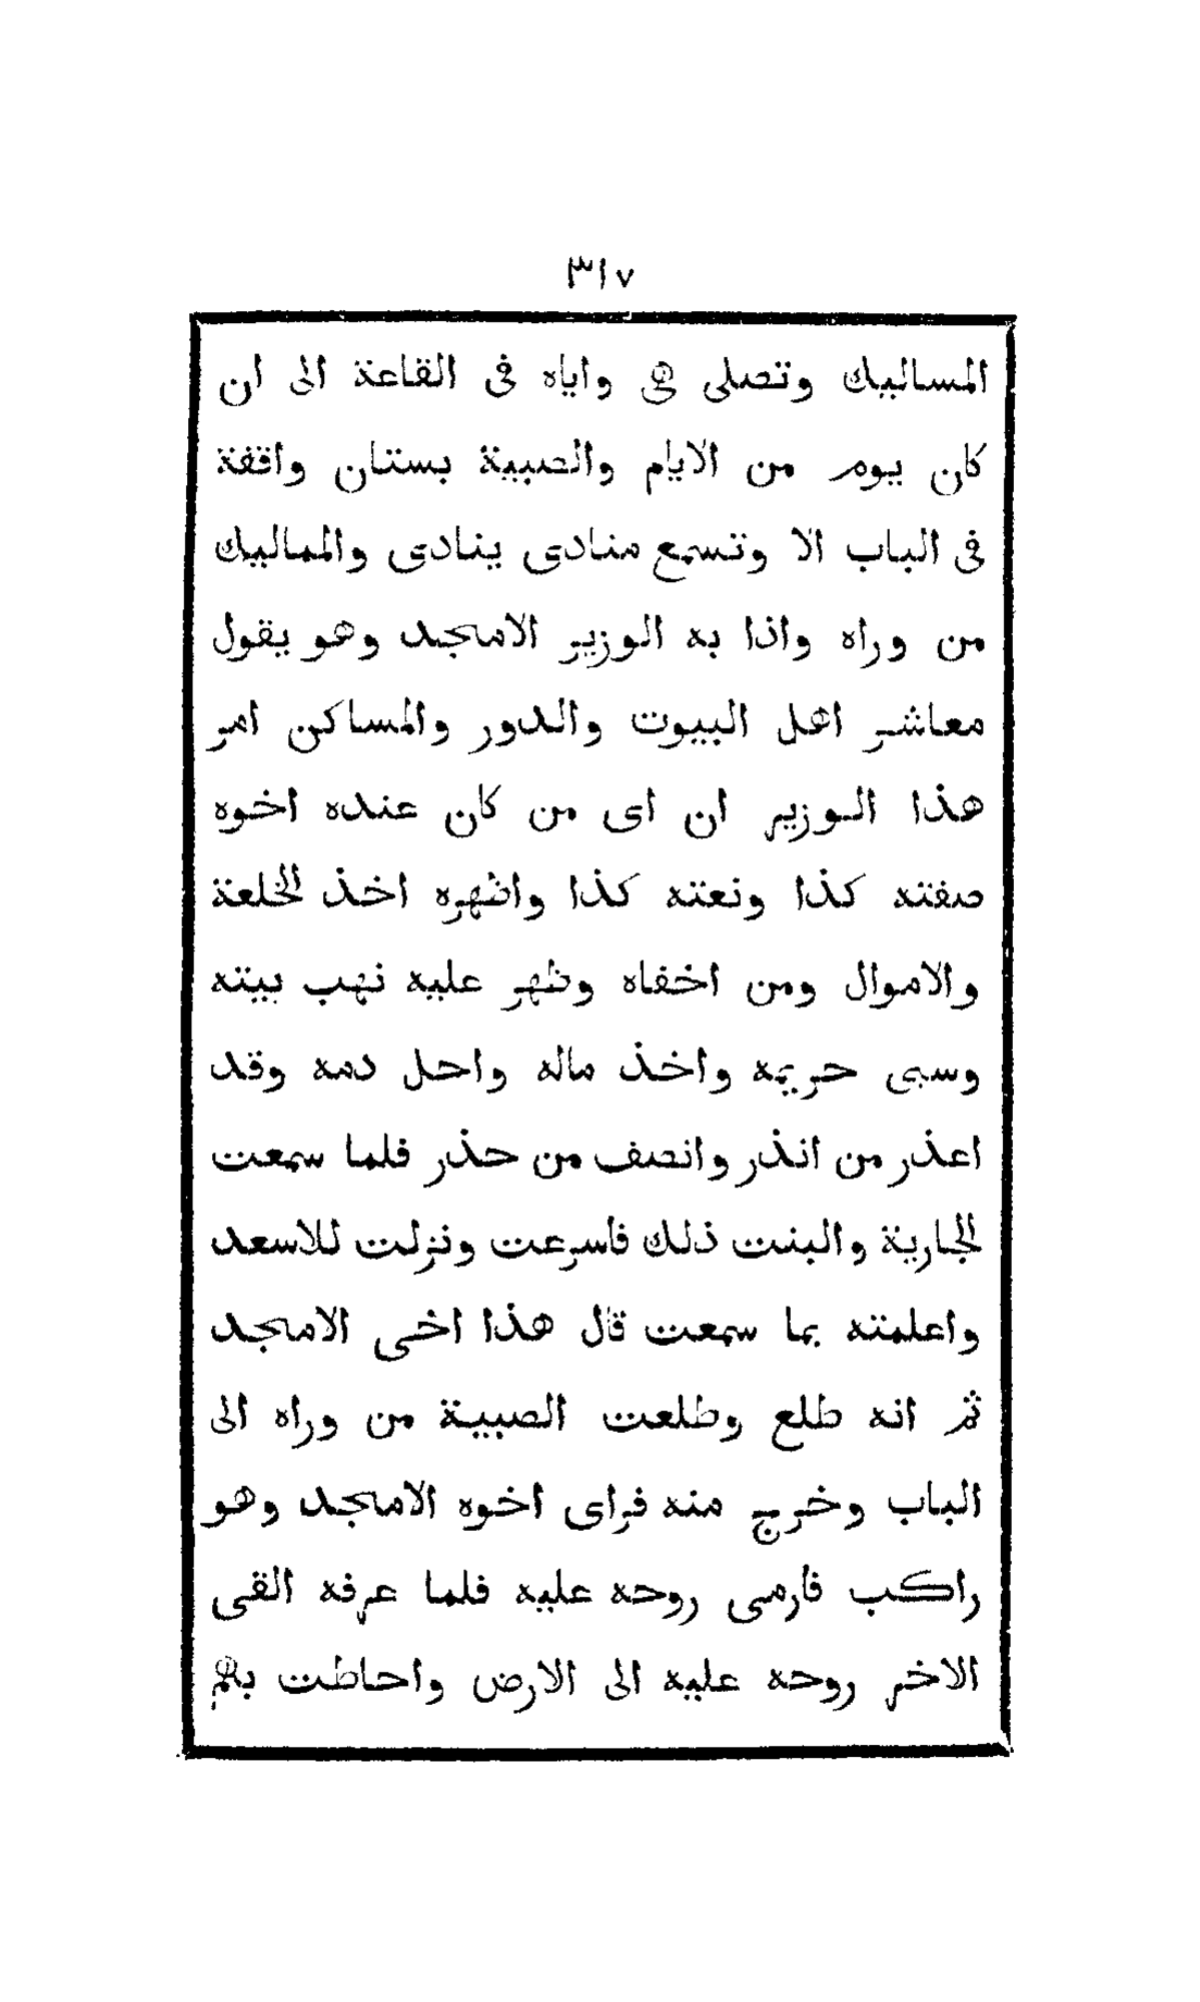 ٣١٧
المساليك وتصلى هى واياه فى القاعة الى ان
كان يوم من الايام والصبية بستان واقفة
فى الباب الا وتسمع منادى ينادى والمماليك
من وراه واذا به الوزير الامجد وهو يقول
معاشر اهل البيوت والدور والمساكن امر
هذا الوزير ان اى من كان عنده اخوه
صفته كذا ونعته كذا واظهره اخذ الخلعة
والاموال ومن اخفاه وظهر عليه نهب بيته
وسبى حريمه واخذ ماله واحل دمه وقد
اعذر من انذر وانصف من حذر فلما سمعت
الجارية والبنت ذلك فاسرعت ونزلت للاسعد
واعلمته بما سمعت قال هذا اخى الامجد
ثم انه طلع وطلعت الصبية من وراه الى
الباب وخرج منه فراى اخوه الامجد وهو
راكب فارمى روحه عليه فلما عرفه القى
الاخر روحه عليه الى الارض واحاطت بهم